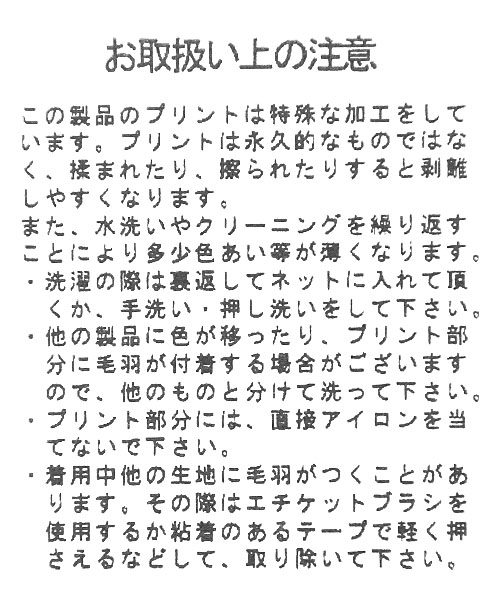 お取扱い上の注意
この製品のプリントは特殊な加工をして
います。プリントは永久的なものではな
く、揉まれたり、擦られたりすると剥離
しやすくなります。
また、水洗いやクリーニングを繰り返す
ことにより多少色あい等が薄くなります。
・洗濯の際は裏返してネットに入れて頂
くか、手洗い・押し洗いをして下さい。
・他の製品に色が移ったり、プリント部
分に毛羽が付着する場合がございます
ので、他のものと分けて洗って下さい。
・プリント部分には、直接アイロンを当
てないで下さい。
・着用中他の生地に毛羽がつくことがあ
ります。その際はエチケットブラシを
使用するか粘着のあるテープで軽く押
さえるなどして、取り除いて下さい。